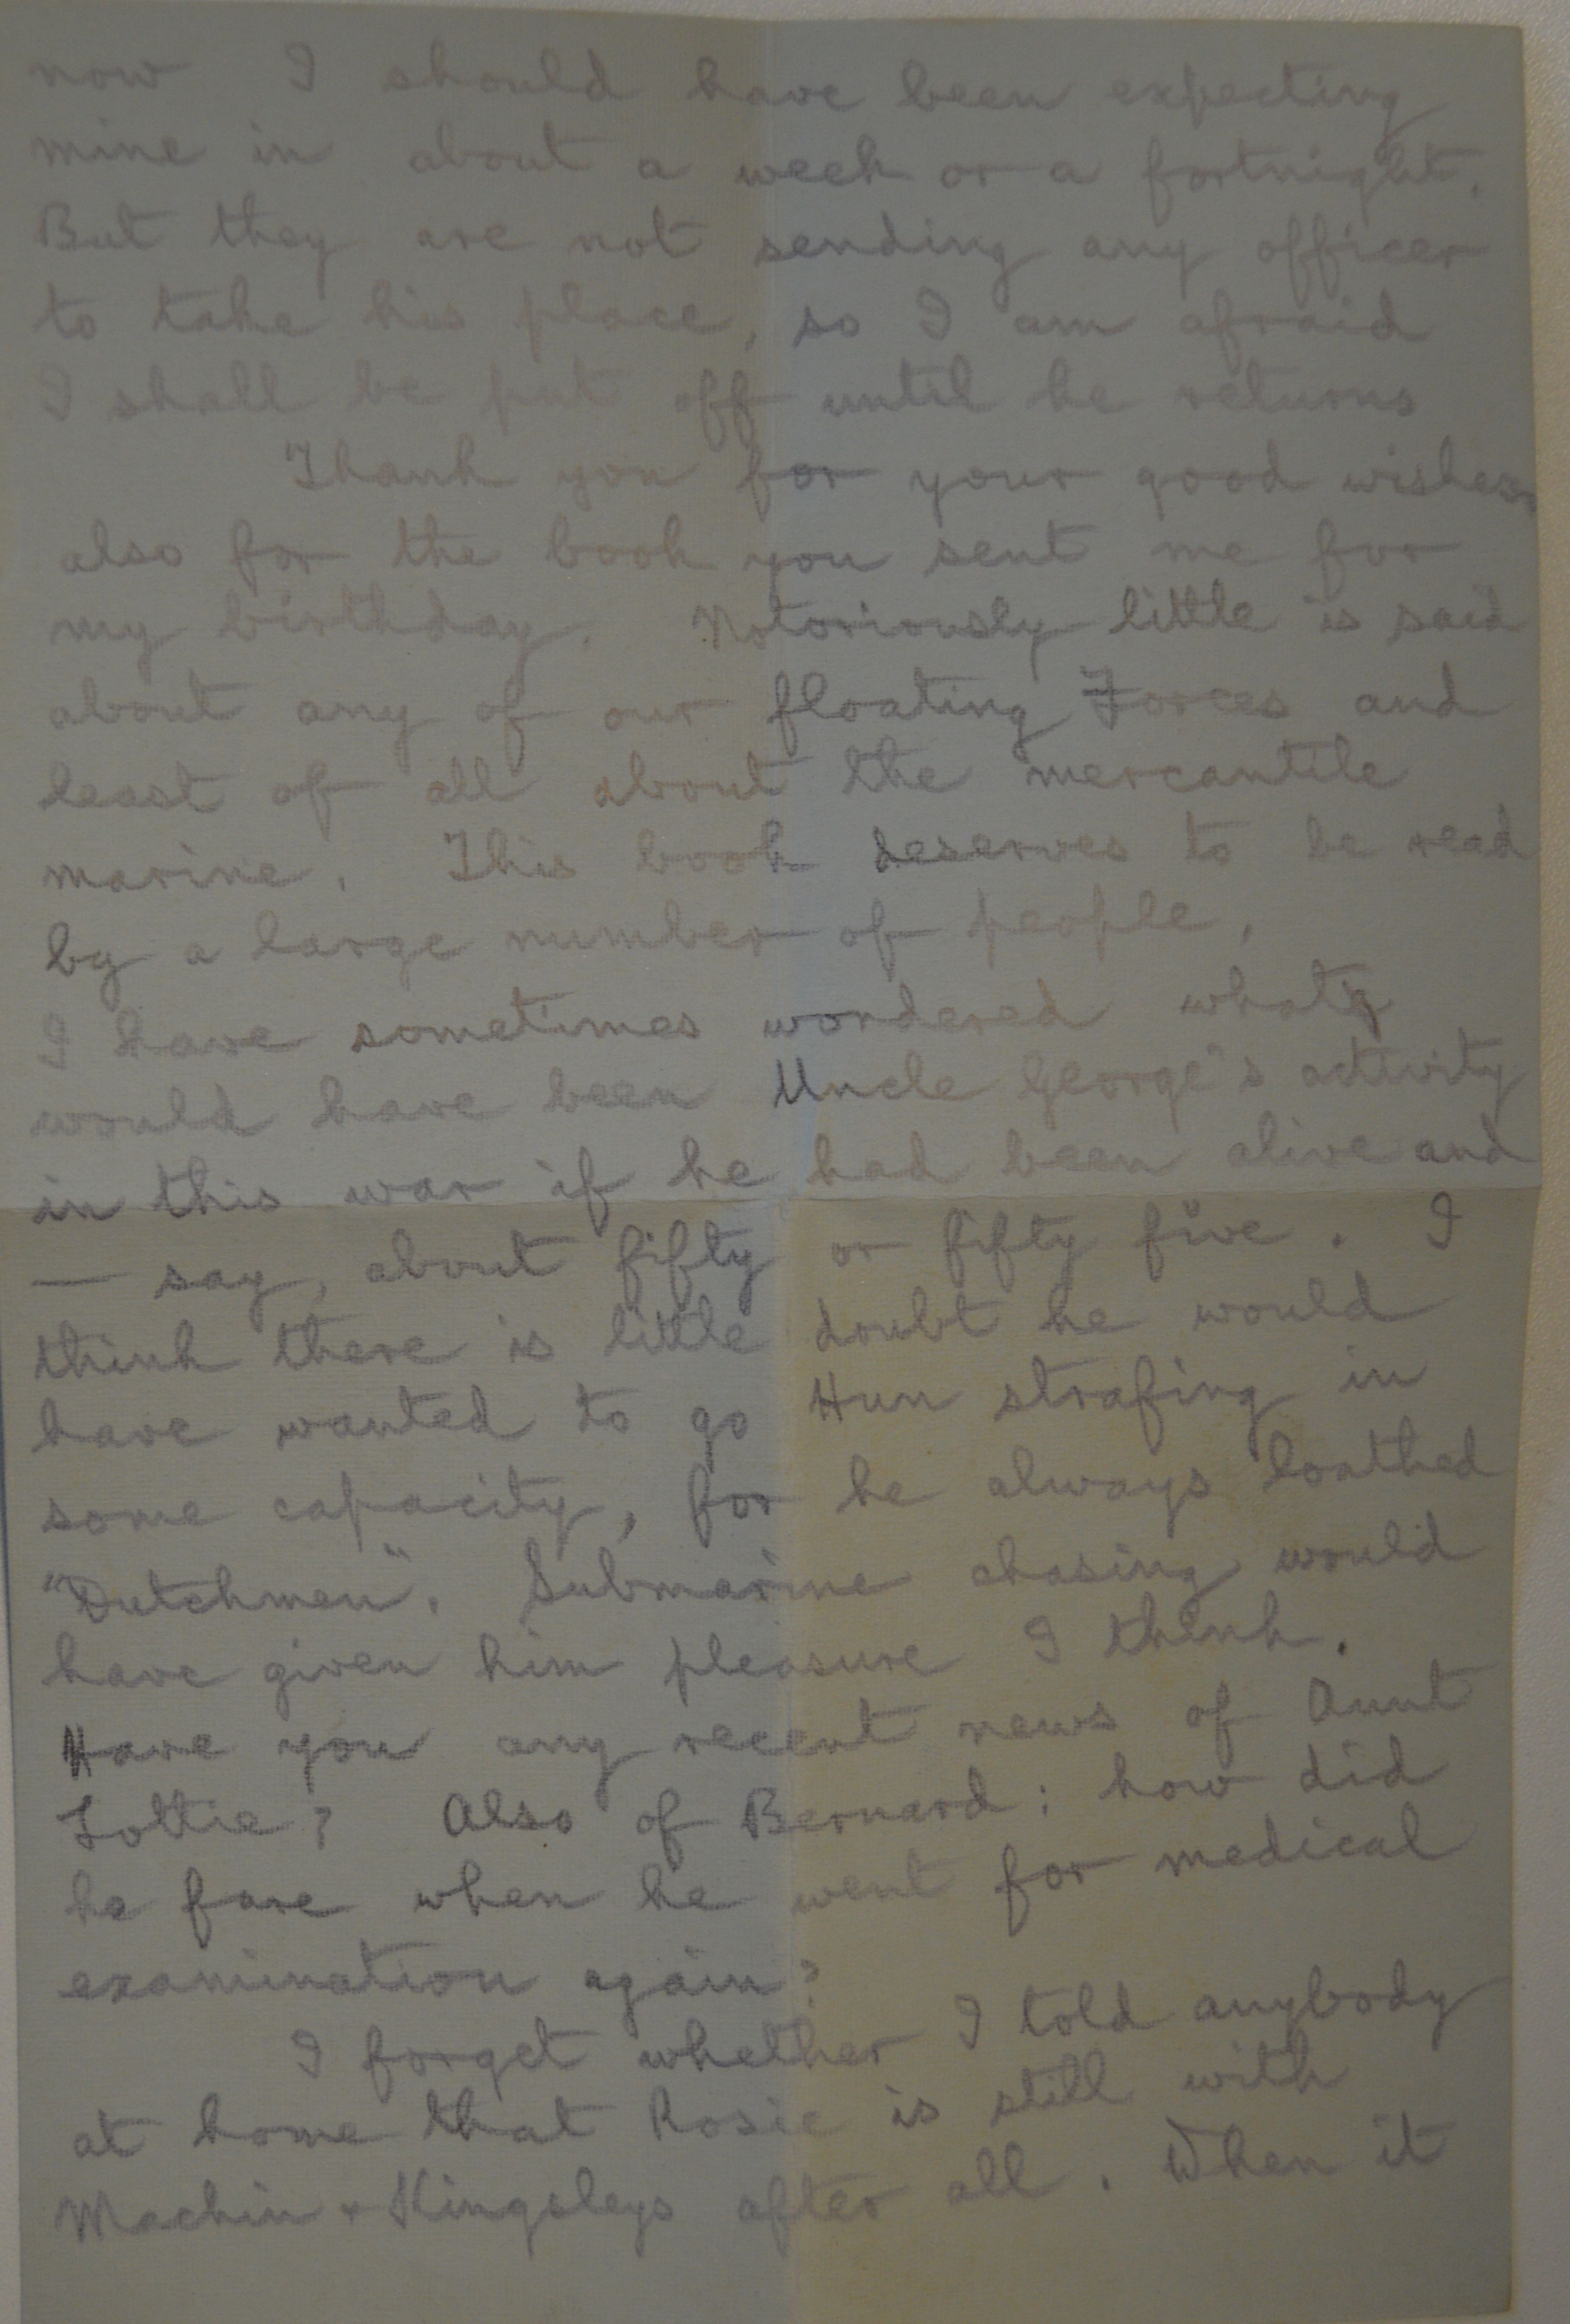 now I should have been expecting
mine in about a week or a fortnight.
But they are not sending any officer
to take his place, so I am afraid
I shall be put off until he returns
Thank you for your good wishes,
also for the book you sent me for
my birthday. Notoriously little is said
about any of our floating Forces and
least of all about the mercantile
marine. This book deserves to be read
by a large number of people,
I have sometimes wondered what
would have been Uncle George's activity
in this war if he had been alive and
— say, about fifty or fifty five. I
think there is little doubt he would
have wanted to go Hun strafing in
some capacity, for he always loathed
"Dutchmen". Submarine chasing would
have given him pleasure I think.
Have you any recent news of Aunt
Lottie? Also of Bernard: how did
he fare when he went for medical
examination again?
I forget whether I told anybody
at home that Rosie is still with
Machin & Kingsleys after all. When it